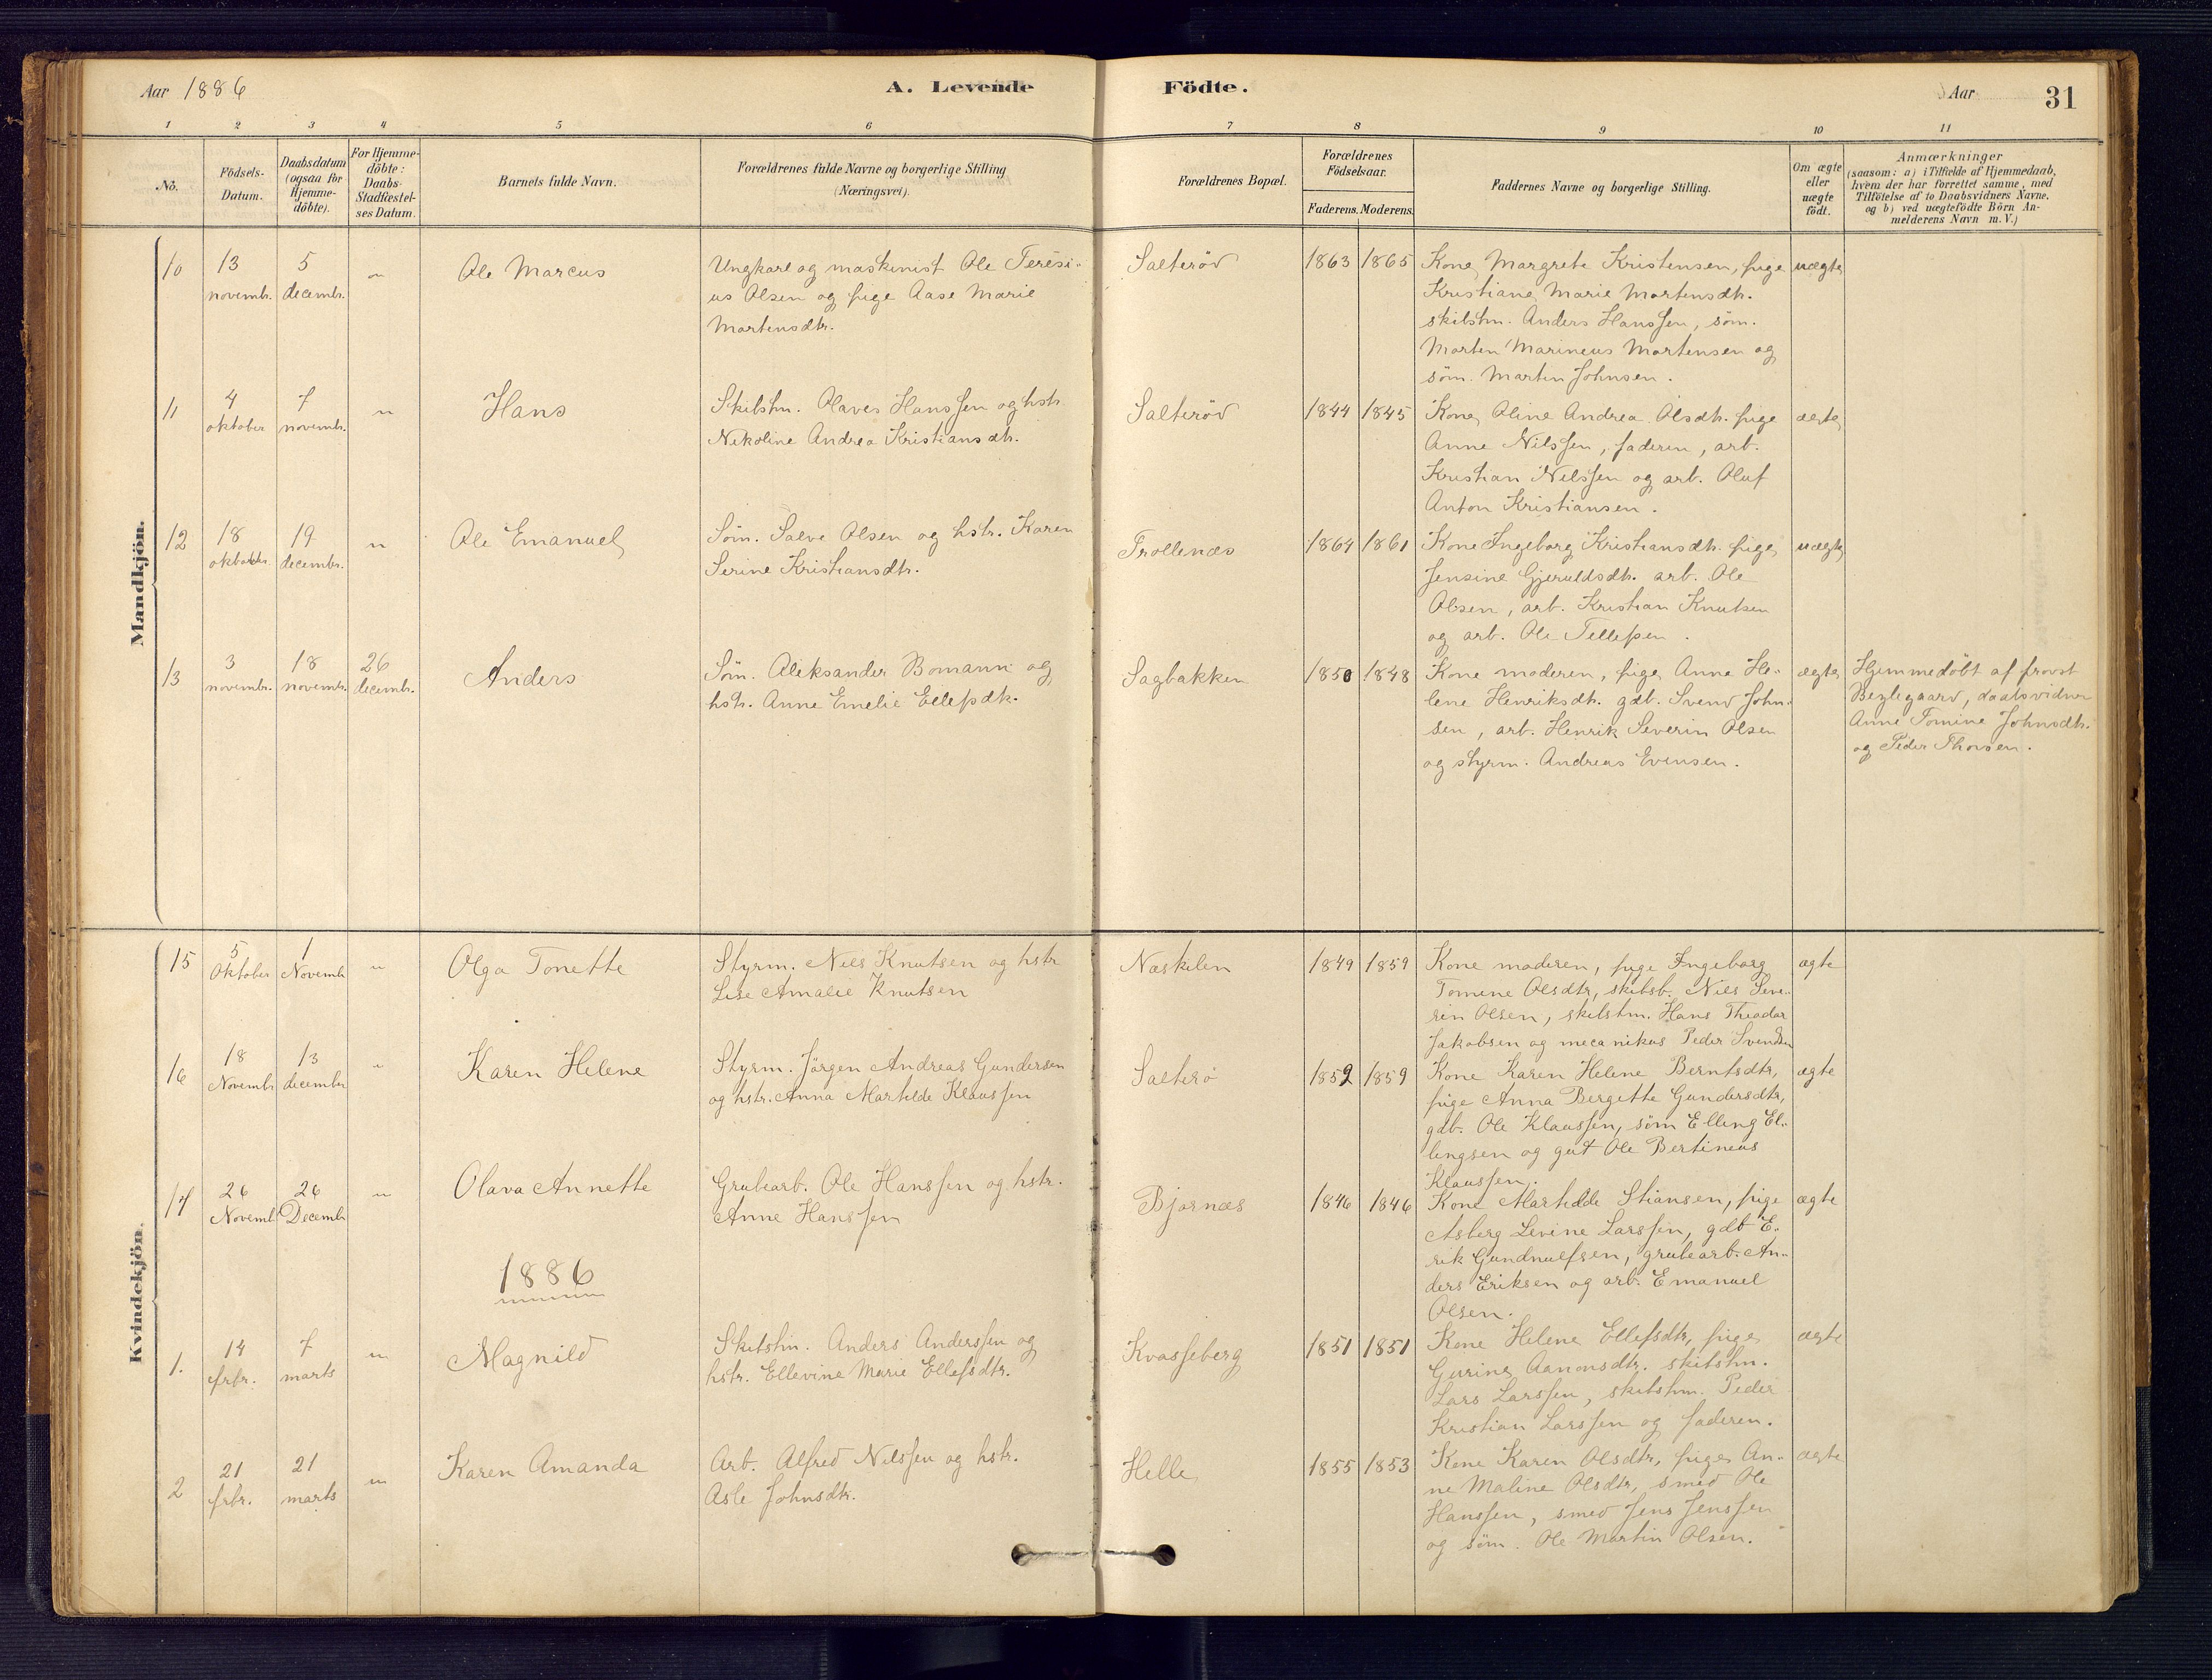 Aar 1886
A. Levende Födte.
Aar
31
1 2 3 4 5 6 7 8 9 10 11
No.
Födsels-Datum.
Daabsdatum (ogsaa for Hjemme-döbte).
For Hjemme-döbte: Daabs-Stadfæstel-ses Datum.
Barnets fulde Navn.
Forældrenes fulde Navne og borgerlige Stilling (Næringsvei).
Forældrenes Bopæl.
Forældrenes Födselsaar.
Faderens. Moderens.
Faddernes Navne og borgerlige Stilling.
Om ægte eller uægte födt.
Anmærkninger
(saasom: a) i Tilfælde af Hjemmedaab,
hvem der har forrettet samme, med
Tilföielse af to Daabsvidners Navne,
og b) ved uægtefödte Börn An-
melderens Navn m. V.)
Mandkjön.
10
13 novembr.
5 decembr.
"
Ole Marcus
Ungkarl og maskinist Ole Terési-
us Olsen og pige Aase Marie
Martensdtr.
Salterød
1863 1865
Kone Margrete Kristensen, pige
Kristiane Marie Martensdtr.
skibstm. Anders Hanssen, söm.
Morten Marineus Mortensen og
söm. Martin Johnsen.
uægte
11
4 oktober
7 novembr.
"
Hans
Skibstm. Olaves Hanssen og hstr.
Nikoline Andrea Kristiansdtr.
Salterød
1844 1845
Kone Oline Andrea Olsdtr. pige
Anne Nilssen, faderen, arb.
Kristian Nilssen og arb. Oluf
Anton Kristiansen.
ægte
12
18 oktober
19 decembr.
"
Ole Emanuel
Söm. Salve Olsen og hstr. Karen
Serine Kristiansdtr.
Trollenæs
1864 1861
Kone Ingeborg Kristiansdtr. pige
Jensine Gjeruldsdtr. arb. Ole
Olsen, arb. Kristian Knutsen
og arb. Ole Tellefsen.
uægte
13
3 novembr.
18 novembr.
26 decembr.
Anders
Söm. Aleksander Bomann og
hstr. Anne Emelie Ellefsdtr.
Sagbakken
1850 1848
Kone moderen, pige Anne He-
lene Henriksdtr. gdb. Svend John-
sen, arb. Henrik Severin Olsen
og styrm. Andreas Evensen.
ægte
Hjemmedöbt af provst
daabsvidner
Anne Tomine Johnsdtr.
og Peder Thorsen.
Kvindekjön.
15
5 Oktober
1 Novembr
"
Olga Tonette
Styrm. Niels Knutsen og hstr
Lise Amalie Knutsen
Næskilen
1849 1859
Kone moderen, pige Ingeborg
Tomine Olsdtr, skibsb. Niels Seve-
rin Olsen, skibstm. Hans Theodor
Jakobsen og mecanikus Peder Svendsen
ægte
16
18 Novembr
13 december
"
Karen Helene
Styrm. Jörgen Andreas Gundersen
og hstr. Anna Marthilde Klaussen
Salterö
1852 1859
Kone Karen Helene Berntsdtr,
pige Anna Bergitte Gundersdtr,
gdb. Ole Klaussen, söm Elling El-
lingsen og gut Ole Bertineus
Klaussen.
ægte
17
26 Novembr
26 Decembr
"
Olava Annette
Grubearb. Ole Hanssen og hstr.
Anne Hanssen
Bjornæs
1846 1846
Kone Marthilde Stiansen, pige
Asberg Levine Larssen, gdb E-
rik Gundnulfsen, grubearb. An-
ders Eriksen og arb. Emanuel
Olsen.
ægte
1886
1.
14 frbr.
7 marts
"
Magnild
Skibstm. Anders Anderssen og
hstr. Ellevine Marie Ellefsdtr.
Kvasseberg
1851 1851
Kone Helene Ellefsdtr, pige
Gurine Aanonsdtr. skibstm.
Lars Larssen, skibstm. Peder
Kristian Larssen og faderen.
ægte
2
21 frbr.
21 marts
"
Karen Amanda
Arb. Alfred Nilssen og hstr.
Asle Johnsdtr.
Helle
1855 1853
Kone Karen Olsdtr, pige An-
ne Maline Olsdtr, smed Ole
Hanssen, smed Jens Jenssen
og söm. Ole Martin Olsen.
ægte